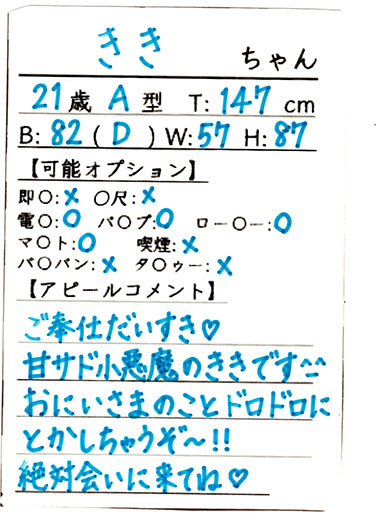 きき ちゃん
21歳 A型 T:147cm
B:82(D)W:57 H:87
【可能オプション】
即〇:× 〇尺:×
電〇:〇 バ〇ブ:〇 ロー〇ー:〇
マ〇ト:〇 喫煙:×
パ〇パン:× タ〇ゥー:×
【アピールコメント】
ご奉仕だいすき♡
甘サド小悪魔のききです^^
おにいさまのことドロドロに
とかしちゃうぞ〜!!
絶対会いに来てね♡